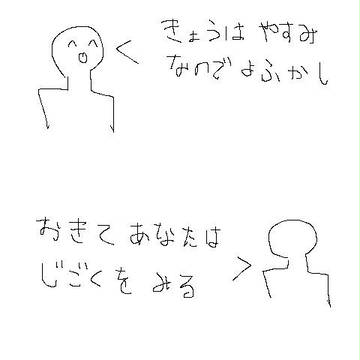 きょうは やすみ
なので よふかし
おきて あなたは
じごくを みる